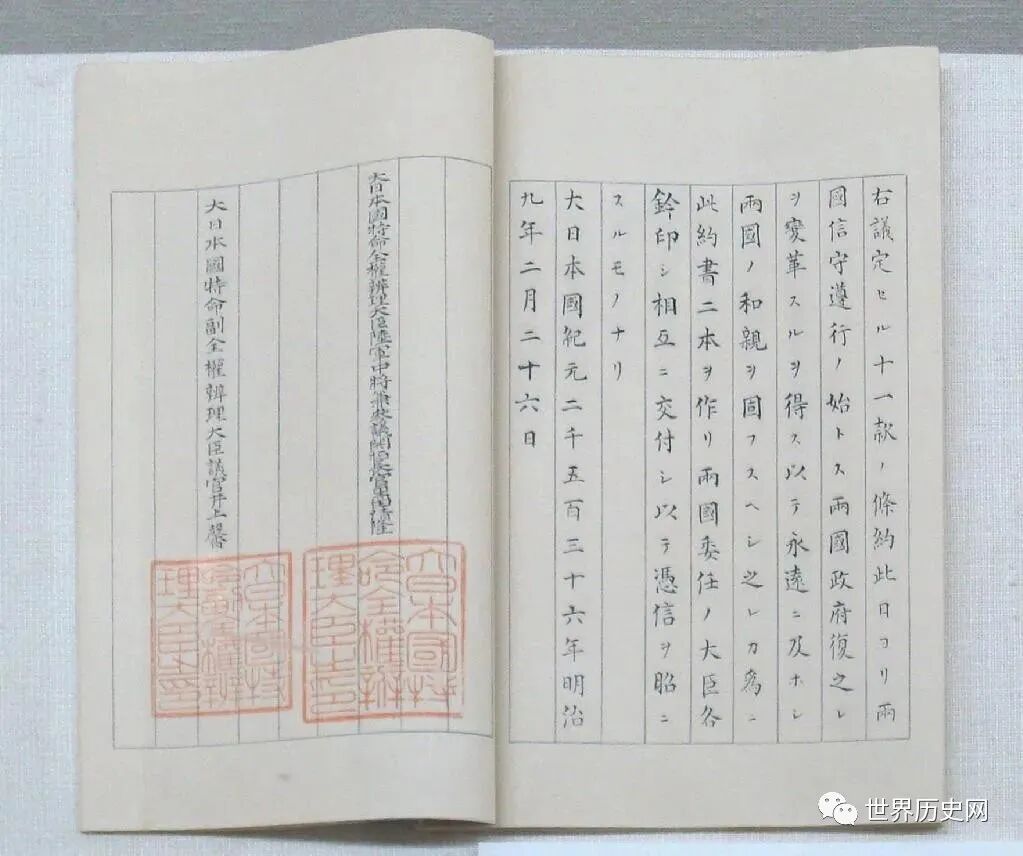 右議定セル十一款ノ條約此日ヨリ兩
國信守遵行ノ始トス兩國政府復之レ
ヲ變革スルヲ得ス以テ永遠ニ及ホシ
兩國ノ和親ヲ固フスヘシ之レカ爲ニ
此約書二本ヲ作リ兩國委任ノ大臣各
鈐印シ相互ニ交付シ以テ憑信ヲ昭ニ
スルモノナリ
大日本國紀元二千五百三十六年明治
九年二月二十六日
大日本國特命全權辨理大臣陸軍中將兼參議開拓長官黑田清隆
大日本國特
命全權辨
理大臣之印
大日本國特命副全權辨理大臣議官井上馨
大日本國特
命副全權辨
理大臣之印
世界历史网